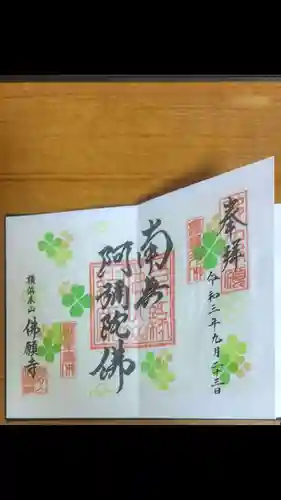 奉拝
令和三年九月二十三日
南無
阿彌陀佛
横浜本山
佛願寺